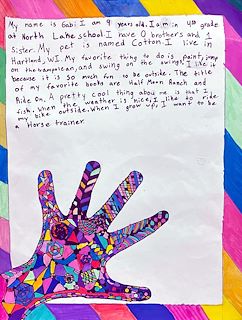 My name is Gabi I am 9 years old. I am in 4th grade
at North Lake school. I have 0 brothers and 1
Sister. My pet is named Cotton. I live in
Hartland, WI. My favorite thing to do is paint, jump
on the trampolean, and swing on the swing. I like it
because it is so much fun to be outside. The title
of my favorite books are Half Moon Ranch and
Ride On. A pretty cool thing about me is that I
fish. When the weather is nice, I like to ride
my bike outside. When I grow up, I want to be
a Horse trainer.